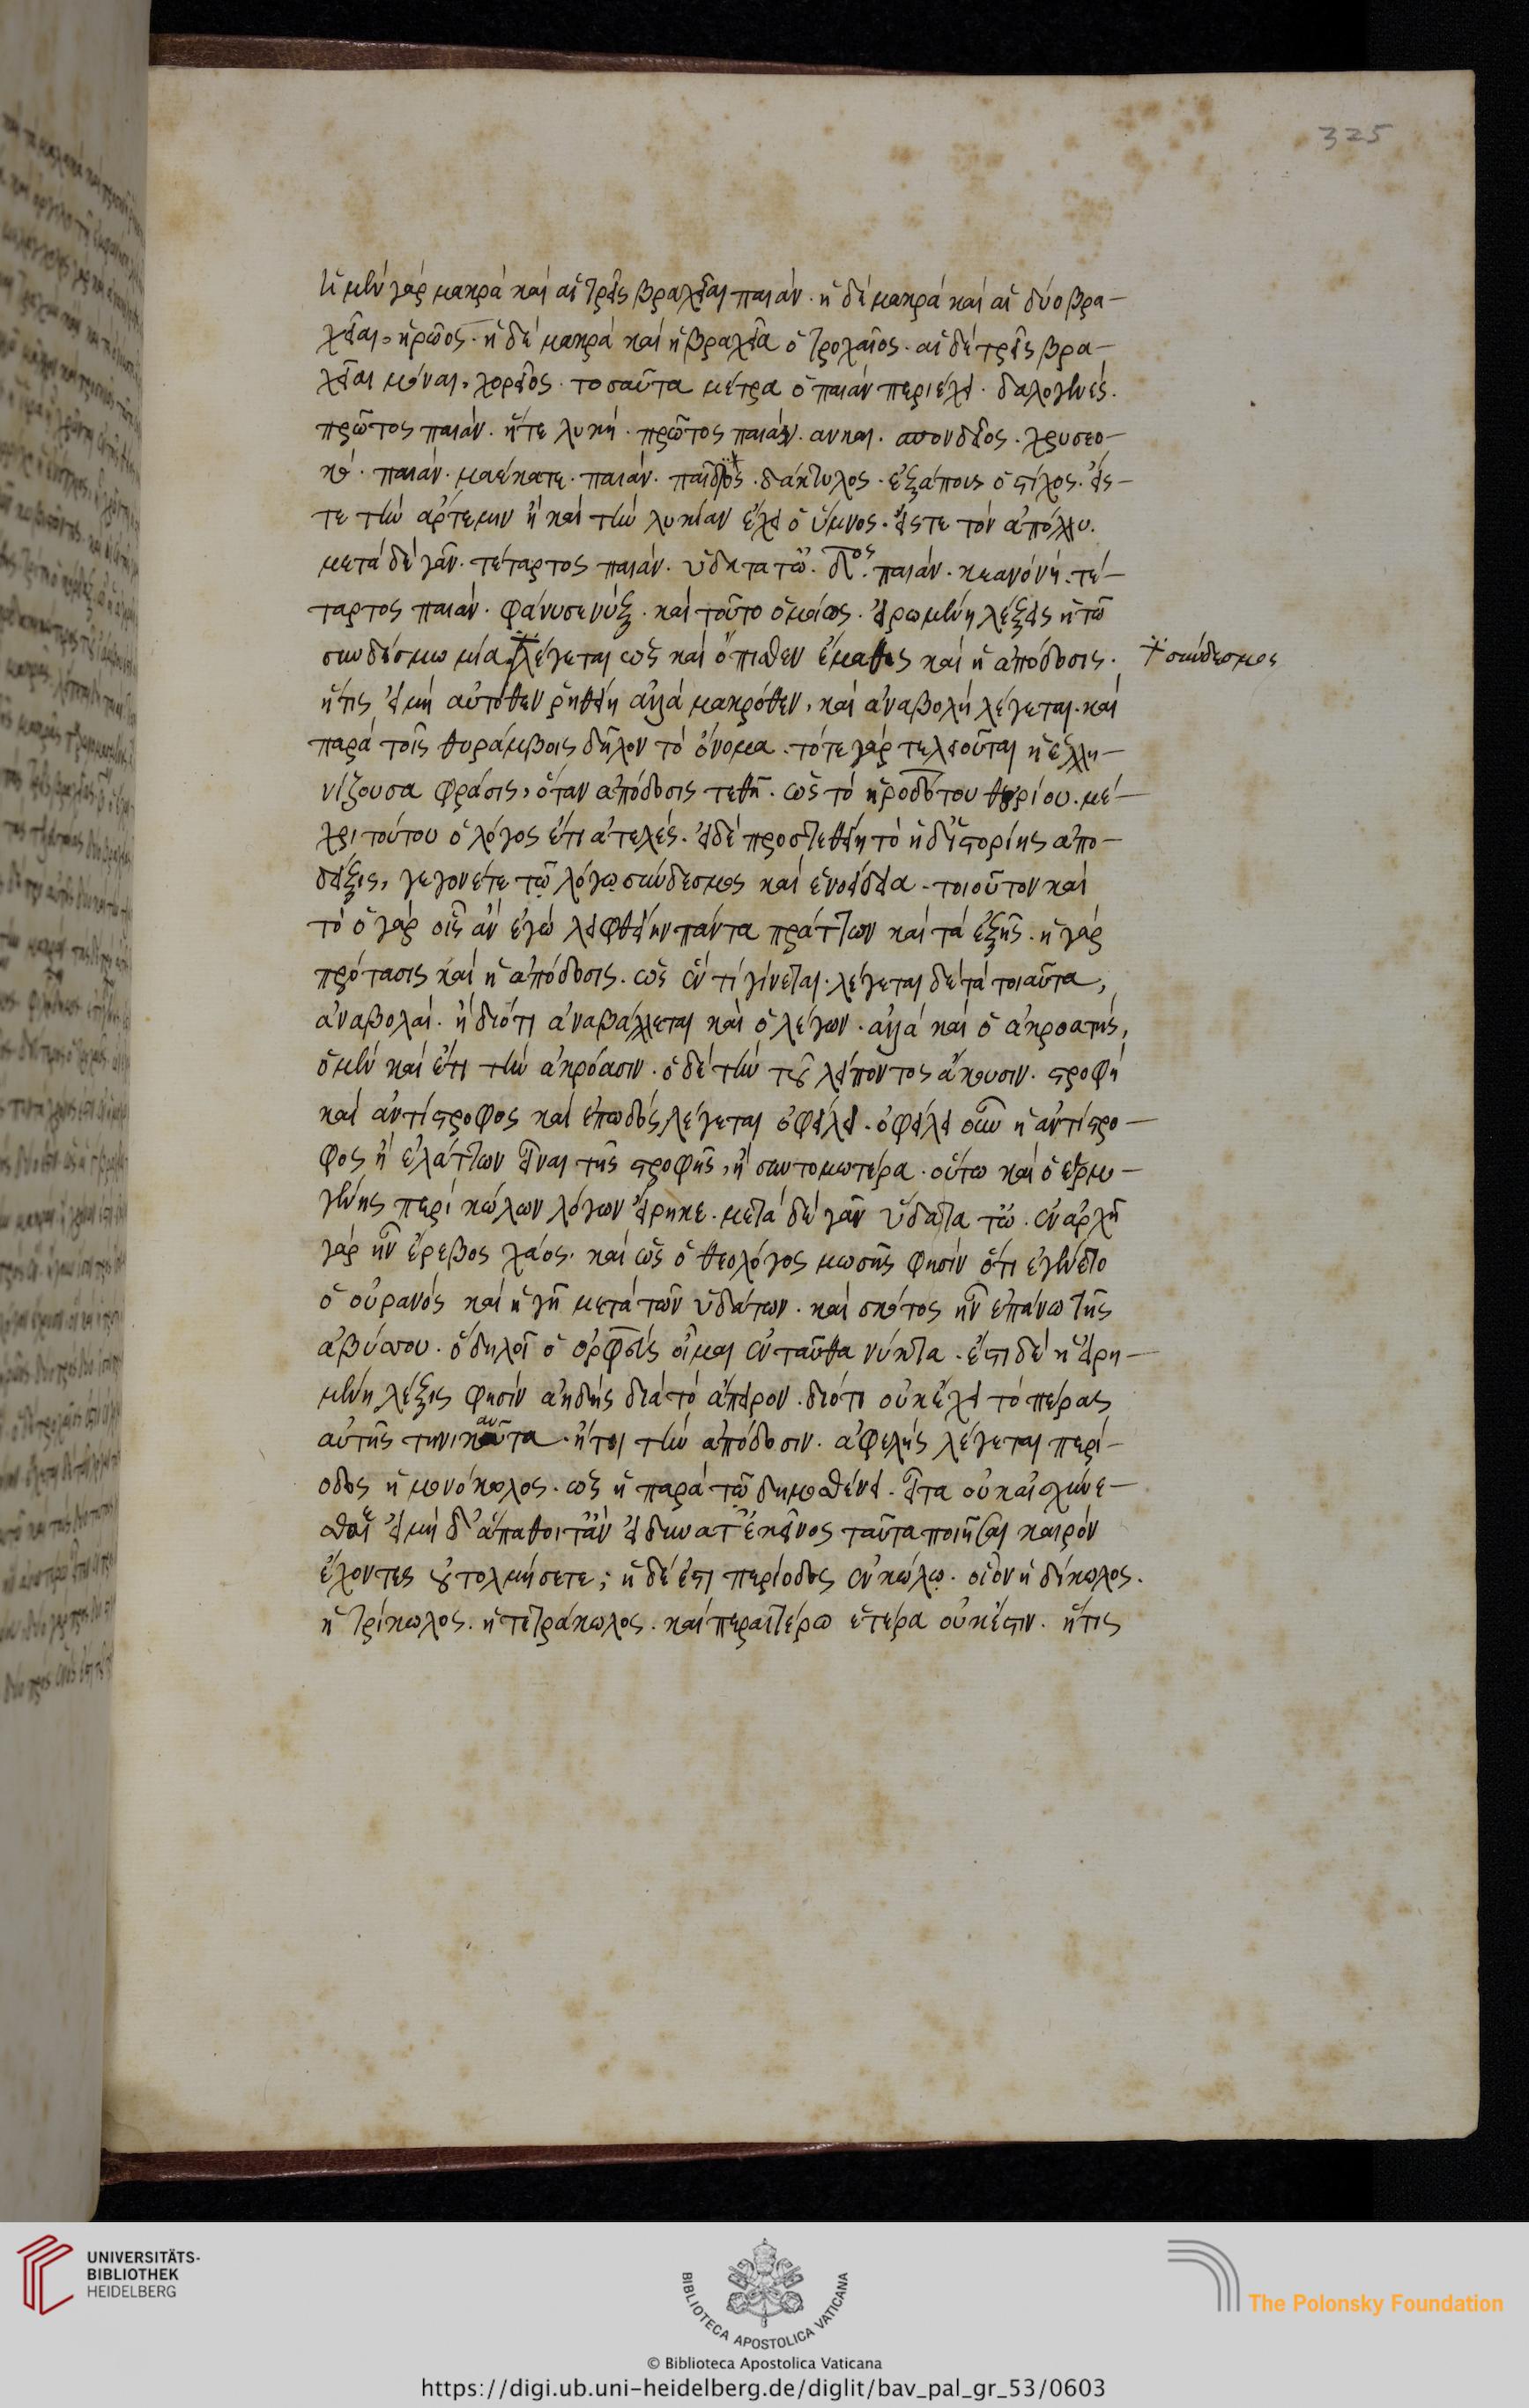 325
ἡ μὲν γὰρ μακρὰ καὶ αἱ τρεῖς βραχεῖαι παιάν· ἡ δὲ μακρὰ καὶ αἱ δύο βρα-
χεῖαι, ἡρῷος· ἡ δὲ μακρὰ καὶ ἡ βραχεῖα ὁ τροχαῖος· αἱ δὲ τρεῖς βρα-
χεῖαι μόναι, χορεῖος· τοσαῦτα μέτρα ὁ παιὰν περιέχει· δαλογενές·
πρῶτος παιάν· ἤτε λυκή· πρῶτος παιάν· ανκαι· σπονδεῖος· χρυσεο-
κό· παιάν· μαέκατε· παιάν· παῖδιὸς· δάκτυλος· ἑξάπους ὁ στίχος· εἴς-
τε τὴν ἄρτεμιν ἢ καὶ τὴν λυκίαν ἔχει ὁ ὕμνος· εἴςτε τὸν ἀπόλλω·
μετὰ δὲ γᾶν· τέταρτος παιάν· ὑδατατῶ· δος· παιάν· κεανόνή· τέ-
ταρτος παιάν· φάνυσενύξ· καὶ τοῦτο ὁμοίως· εἰρωμένη λέξεις ἡ τῶ
συνδέσμω μία λέγεται ὡς καὶ ὄπισθεν ἔμαθες καὶ ἡ ἀπόδοσις· σύνδεσμος
ἥτις εἰ μὴ αὐτόθεν ῥηθείη ἀλλὰ μακρόθεν, καὶ ἀναβολὴ λέγεται· καὶ
παρὰ τοῖς θυράμβοις δῆλον τὸ ὄνομα· τότε γὰρ τελειοῦται ἡ ἑλλη-
νίζουσα φράσις, ὅταν ἀπόδοσις τεθῇ· ὡς τὸ ἡροδότου θυρίου· μέ-
χρι τούτου ὁ λόγος ἔτι ἀτελές· εἰ δὲ προστεθείη τὸ ἡ δ' ἱστορίης ἀπο-
δείξις, γέγονέτε τῷ λόγῳ σύνδεσμος καὶ ἑνοείδεια· τοιοῦτον καὶ
τὸ ὁ γὰρ οἷς ἂν ἐγὼ λειφθείην πάντα πράττων καὶ τὰ ἑξῆς· ἡ γὰρ
πρότασις καὶ ἡ ἀπόδοσις· ὡς ἕν τι γίνεται· λέγεται δὲ τὰ τοιαῦτα,
ἀναβολαί· ἢ διότι ἀναβάλλεται καὶ ὁ λέγων· ἀλλὰ καὶ ὁ ἀκροατής,
ὁ μὲν καὶ ἔτι τὴν ἀκρόασιν· ὁ δὲ τὴν τοῦ λείποντος ἄκουσιν· στροφὴ
καὶ ἀντίστροφος καὶ ἐπωδὸς λέγεται ὀφείλει· ὀφείλει οὖν ἡ ἀντίστρο-
φος ἢ ἐλάττων εἶναι τῆς στροφῆς, ἢ συντομωτέρα· οὕτω καὶ ὁ ἑρμο-
γένης περὶ κώλων λόγων εἴρηκε· μετὰ δὲ γᾶν ὕδατα τῶ· ἐν ἀρχῇ
γὰρ ἦν ἔρεβος χάος· καὶ ὡς ὁ θεολόγος μωσῆς φησὶν ὅτι ἐγένετο
ὁ οὐρανὸς καὶ ἡ γῆ μετὰ τῶν ὑδάτων· καὶ σκότος ἦν ἐπάνω τῆς
ἀβύσσου· ὃ δηλοῖ ὁ ὀρφεὺς οἶμαι ἐνταῦθα νύκτα· ἔστι δὲ ἡ εἰρη-
μένη λέξις φησὶν ἀηδὴς διὰ τὸ ἄπειρον· διότι οὐκ ἔχει τὸ πέρας
αὐτῆς τηνικαῦτα· ἤτοι τὴν ἀπόδοσιν· ἀφελὴς λέγεται περί-
οδος ἡ μονόκωλος· ὡς ἡ παρὰ τῷ δημοσθένει· εἶτα οὐκ αἰσχύνε-
σθαι εἰ μὴ δ' ἃ πάθοιτ' ἂν εἰ δύναιτ' ἐκεῖνος ταῦτα ποιῆσαι καιρὸν
ἔχοντες οὐ τολμήσετε; ἡ δέ ἐστι περίοδος ἐν κώλῳ· οἷον ἡ δίκωλος·
ἡ τρίκωλος· ἡ τετράκωλος· καὶ περαιτέρω ἑτέρα οὐκ ἔστιν· ἥτις
UNIVERSITÄTS-
BIBLIOTHEK
HEIDELBERG
BIBLIOTECA APOSTOLICA VATICANA
The Polonsky Foundation
© Biblioteca Apostolica Vaticana
https://digi.ub.uni-heidelberg.de/diglit/bav_pal_gr_53/0603